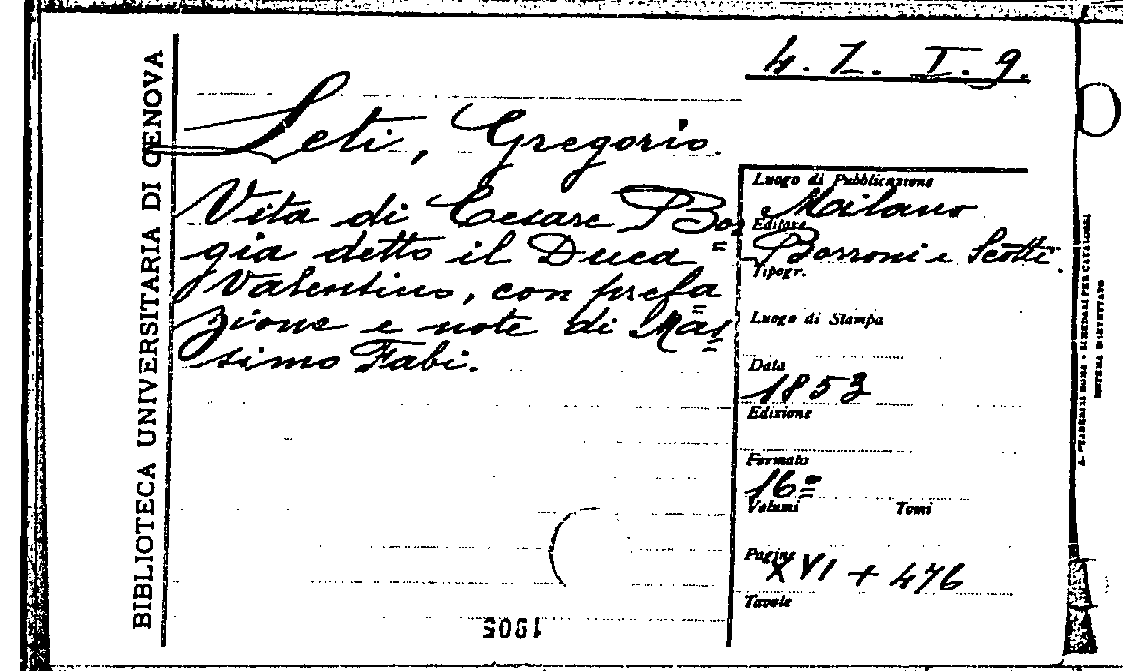 BIBLIOTECA UNIVERSITARIA DI GENOVA
4. Z. I. 9.
Leti, Gregorio.
Vita di Cesare Bor
gia detto il Duca
Valentino, con prefa
zione e note di Mas
simo Fabi.
Luogo di Pubblicazione
Milano
Editore
Borroni e Scotti
Tipogr.
Luogo di Stampa
Data
1853
Edizione
Formato
16º
Volumi Tomi
Pagine
XVI + 476
Tavole
1905